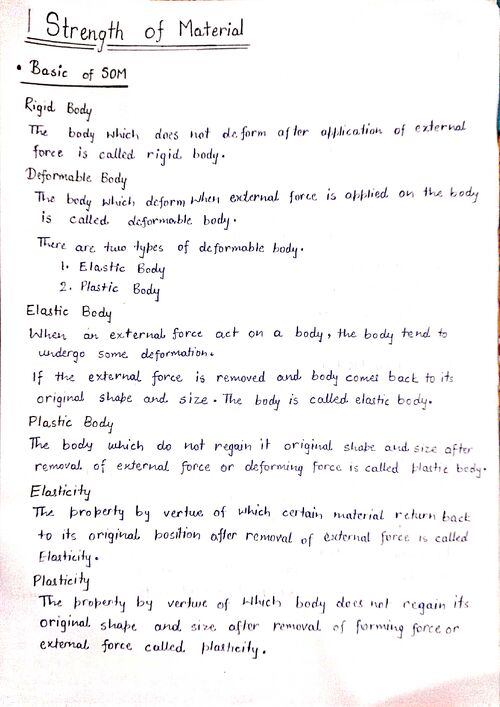 1 Strength of Material
• Basic of SOM
Rigid Body
The body which does not deform after application of external
force is called rigid body.
Deformable Body
The body which deform when external force is applied on the body
is called deformable body.
There are two types of deformable body.
1. Elastic Body
2. Plastic Body
Elastic Body
When an external force act on a body, the body tend to
undergo some deformation.
If the external force is removed and body comes back to its
original shape and size. The body is called elastic body.
Plastic Body
The body which do not regain it original shape and size after
removal of external force or deforming force is called plastic body.
Elasticity
The property by vertue of which certain material return back
to its original position after removal of external force is called
Elasticity.
Plasticity
The property by vertue of which body does not regain its
original shape and size after removal of forming force or
external force called plasticity.